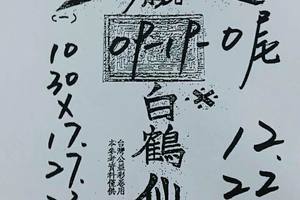 (一)
09-19-0尾
10
30
X
17.
27.
白鶴仙
12.
22
台灣公益彩卷用
本參考資料僅供